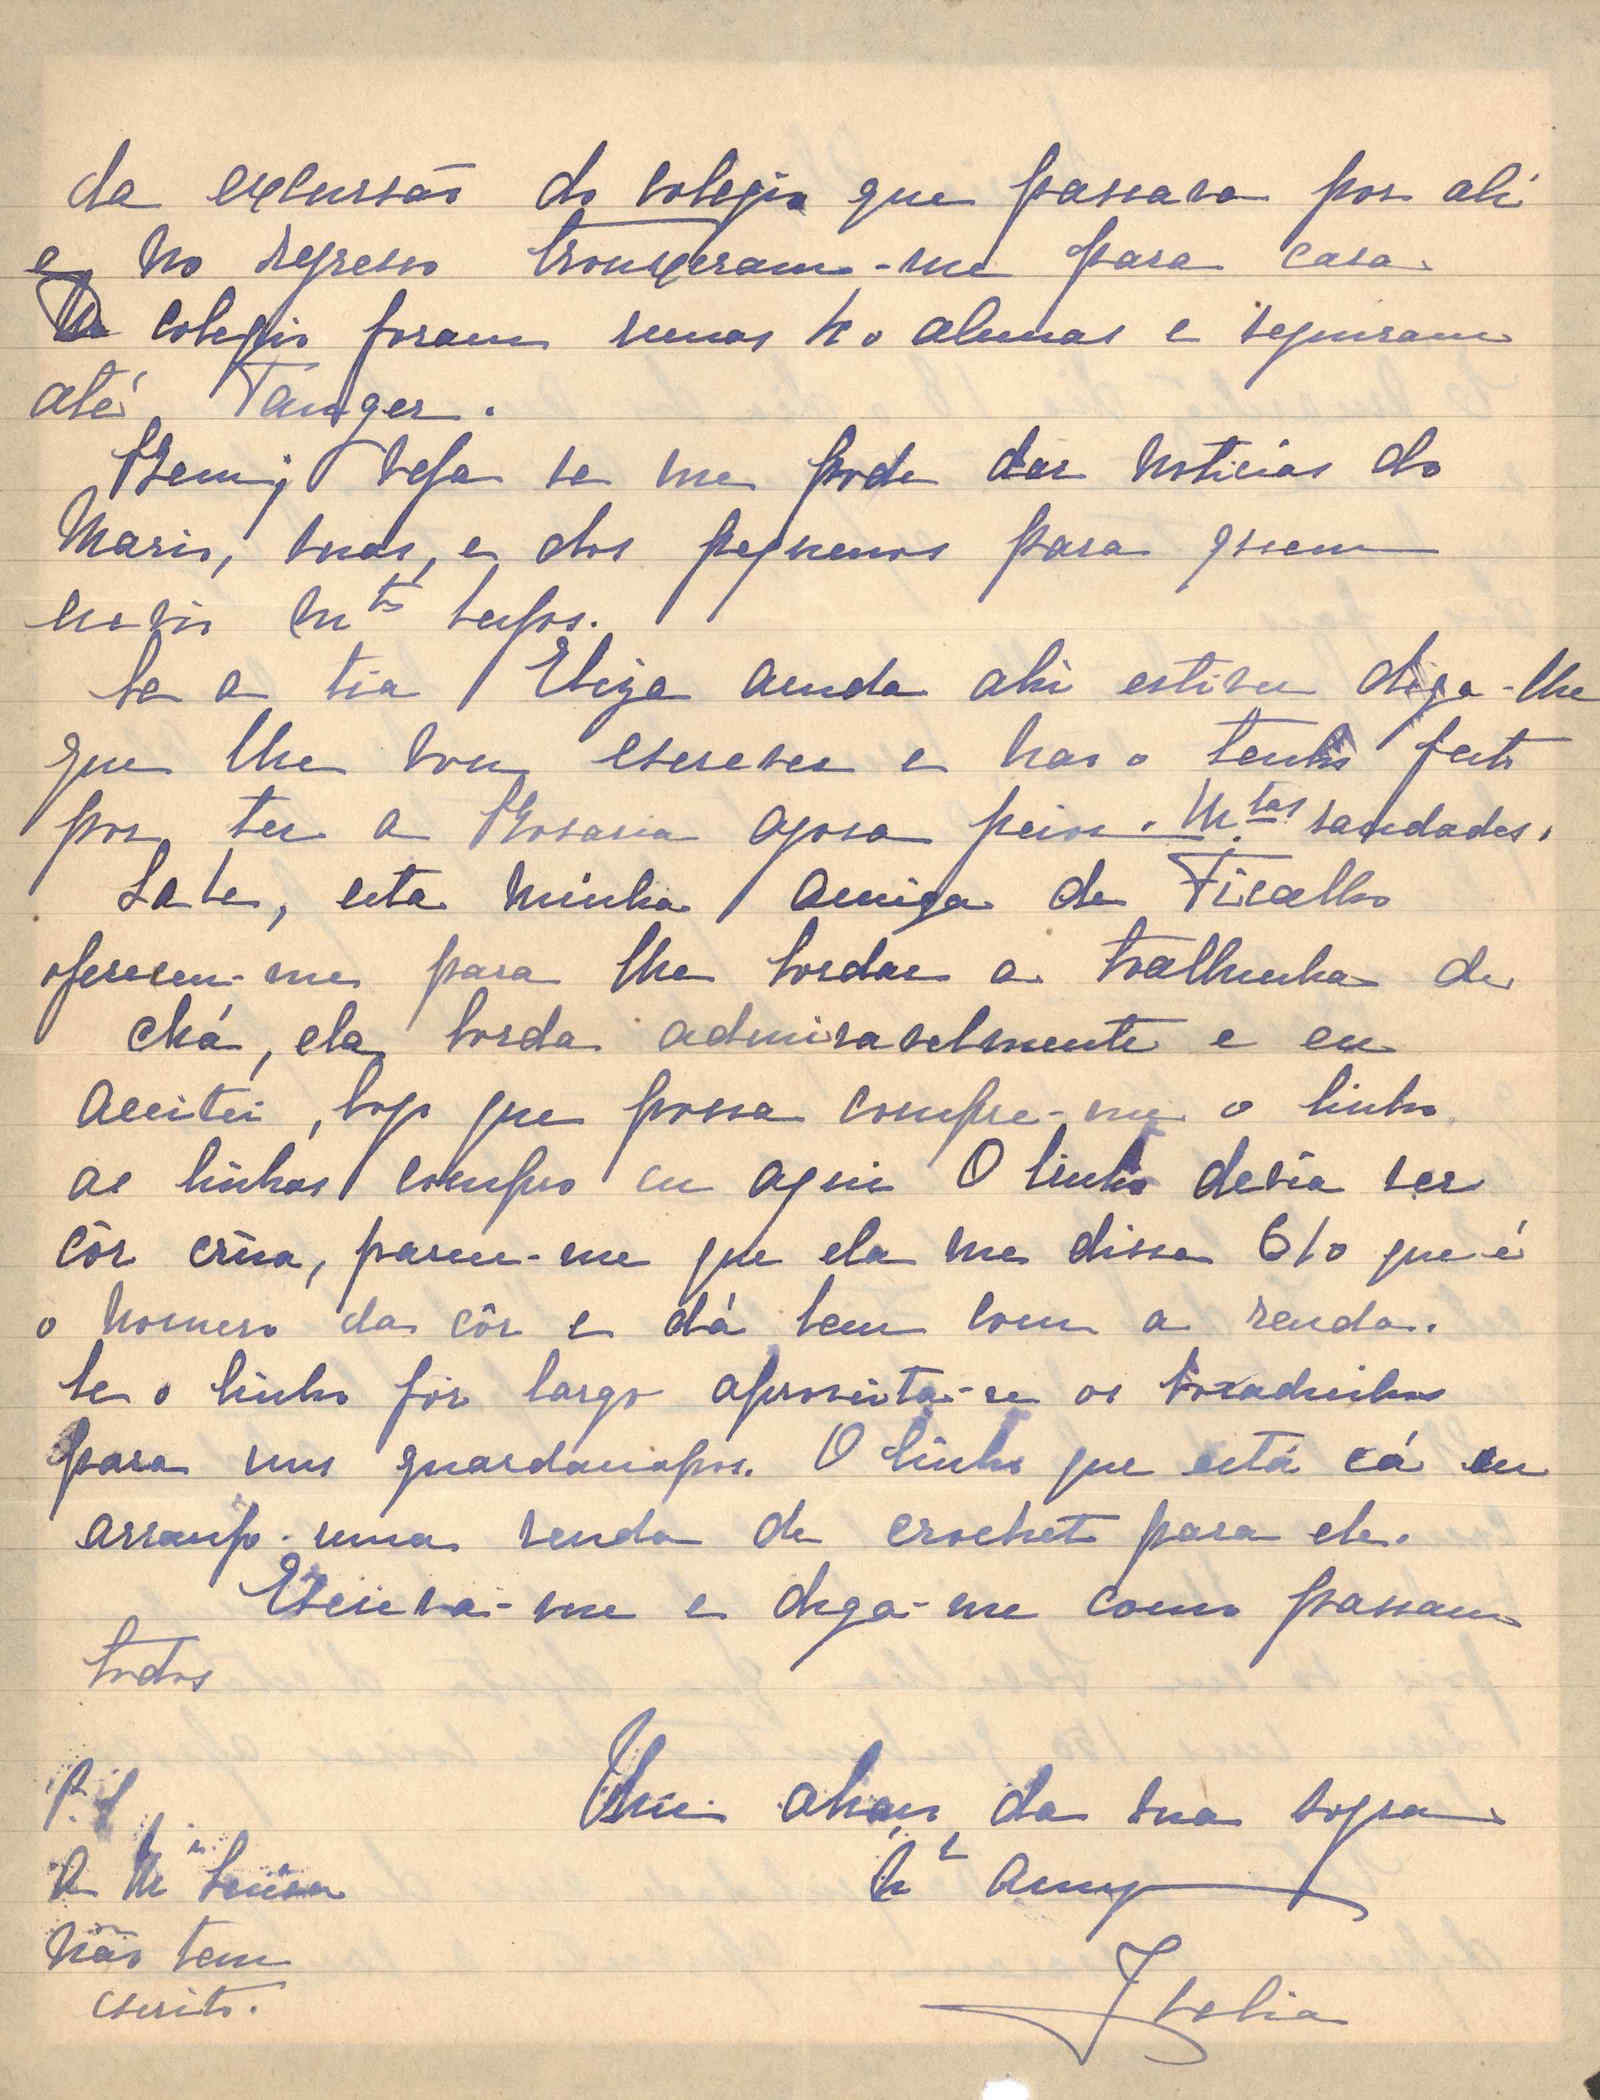 da excursão do colegio que passava por ali
e no regresso trouxeram-me para casa.
Do colegio foram umas 40 alunas e seguiram
até Tanger.
Bem, veja se me pode dar noticias do
Mario, suas, e dos pequenos para quem
envio mtos beijos.
Se a tia Eliza ainda ahi estiver diga-lhe
que lhe vou escrever e não o tenho feito
por ter a Rosaria agora peior. Mtas saudades.
Sabe, esta minha amiga de Ficalho
ofereceu-me para lhe bordar a toalhinha de
chá, ela borda admiravelmente e eu
aceitei, logo que possa compre-me o linho
as linhas compro eu aqui O linho devia ser
côr crúa, pareceu-me que ela me disse 610 que é
o numero da côr e dá bem com a renda.
Se o linho fôr largo aproveita-se os bocadinhos
para uns guardanapos. O linho que está cá eu
arranjo uma renda de crochet para ele.
Escreva-me e diga-me como passam
todos
Um abraço da sua sogra
Mto amiga
Itelia
P.S.
A Ma Luisa
não tem
escrito.